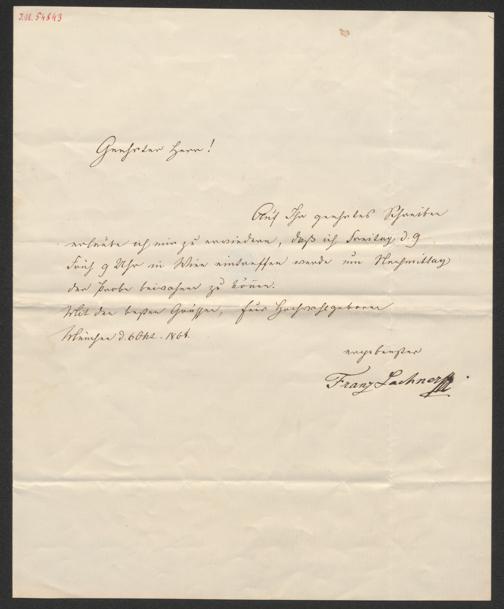 I.N. 54843
Geehrter Herr!
Auf Ihr geehrtes Schreiben
erlaube ich mir zu erwiedern, daß ich Freitag d. 9
Früh 9 Uhr in Wien eintreffen werde um Nachmittag
der Probe beiwohnen zu können.
Mit den besten Grüssen, Euer Hochwohlgeboren
München d. 6 Okt. 186
ergebenster
Franz Lachner